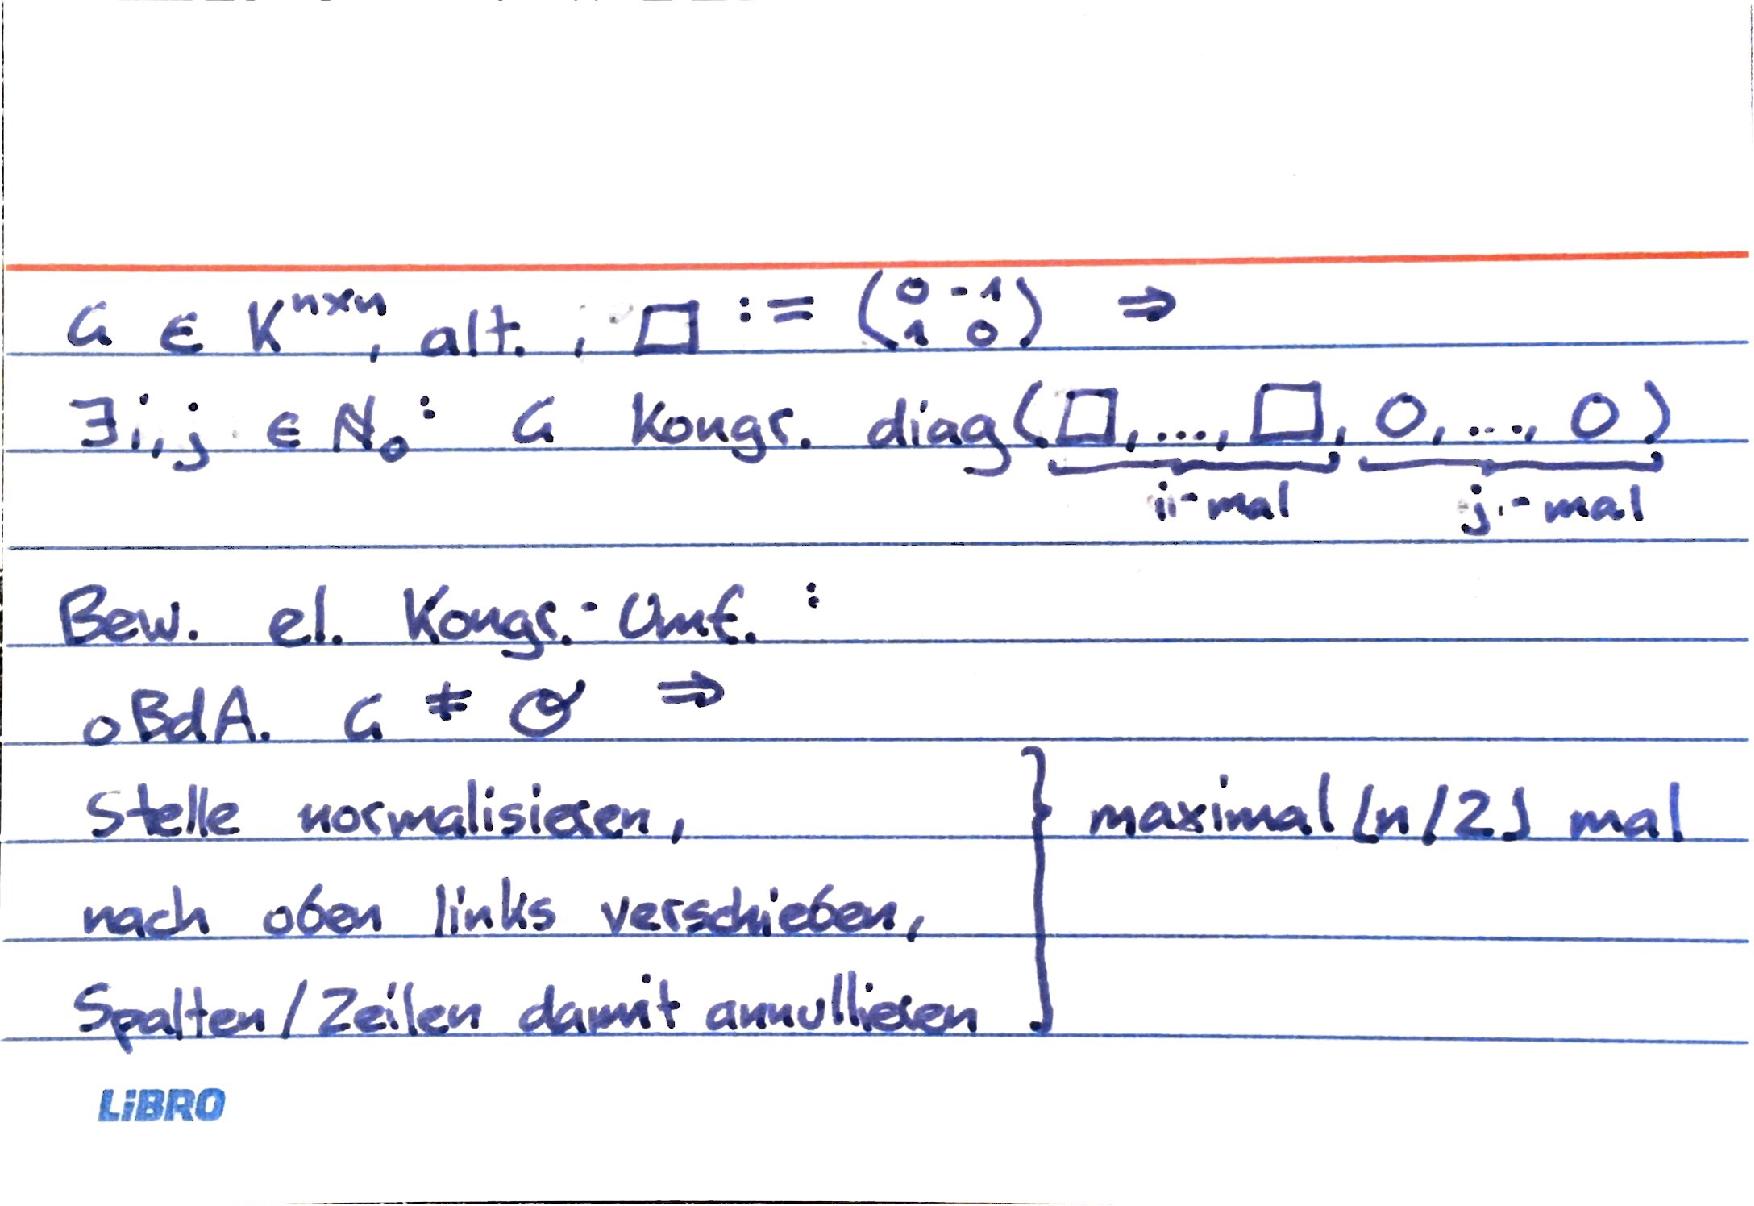 G ∈ K^{n×n}, alt., □ := (0 -1 / 1 0) ⇒
∃i,j ∈ ℕ₀: G kongr. diag(□,...,□, 0,...,0)
i-mal j-mal
Bew. el. Kongr.-Umf.:
oBdA. G ≠ 𝒪 ⇒
Stelle normalisieren, } maximal ⌊n/2⌋ mal
nach oben links verschieben,
Spalten/Zeilen damit annullieren
LiBRO